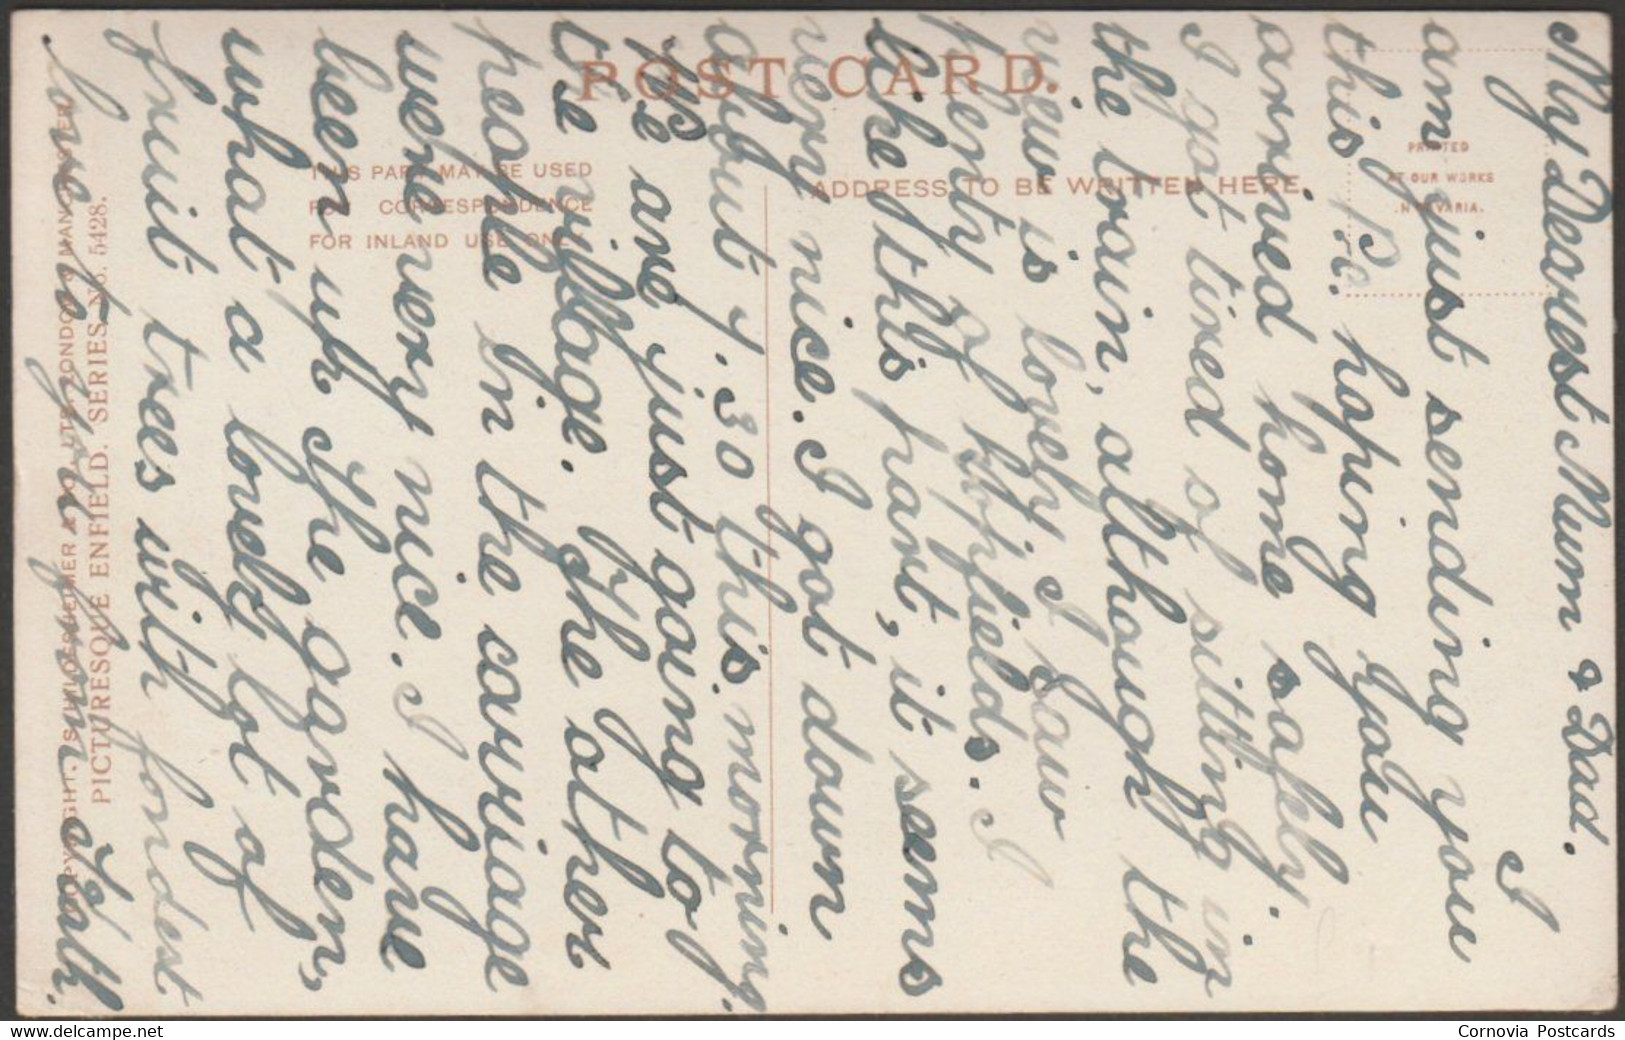 My Dearest Mum & Dad.
I
am just sending you
this P.c. hoping you
arrived home safely.
I got tired of sitting in
the train, although the
view is lovely I saw
plenty of hopfields. I
like this part, it seems
very nice. I got down
about 7.30 this morning.
We are just going to
the village. The other
people in the carriage
were very nice. I have
been up the garden,
what a lovely lot of
fruit trees with fondest
love to you from
POST CARD.
THIS PART MAY BE USED
FOR CORRESPONDENCE
FOR INLAND USE ONLY.
ADDRESS TO BE WRITTEN HERE.
PRINTED
AT OUR WORKS
IN BAVARIA.
COPYRIGHT. SCHLOESSHEIMER & CO. LTD. LONDON & MANCHESTER
PICTURESQUE ENFIELD. SERIES No. 5428.
Cornovia Postcards